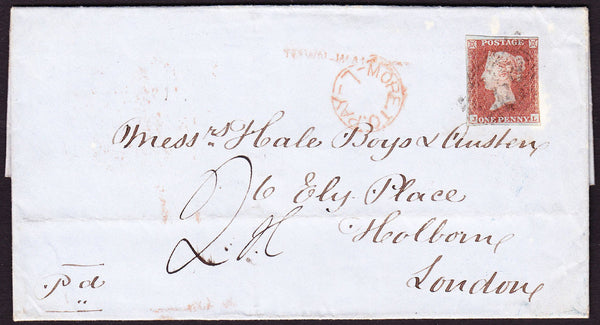 POSTAGE
ONE PENNY
J L
MORE TO PAY
Messrs Hale Boys & Austen
6 Ely Place
Holborn
London
2
Pd